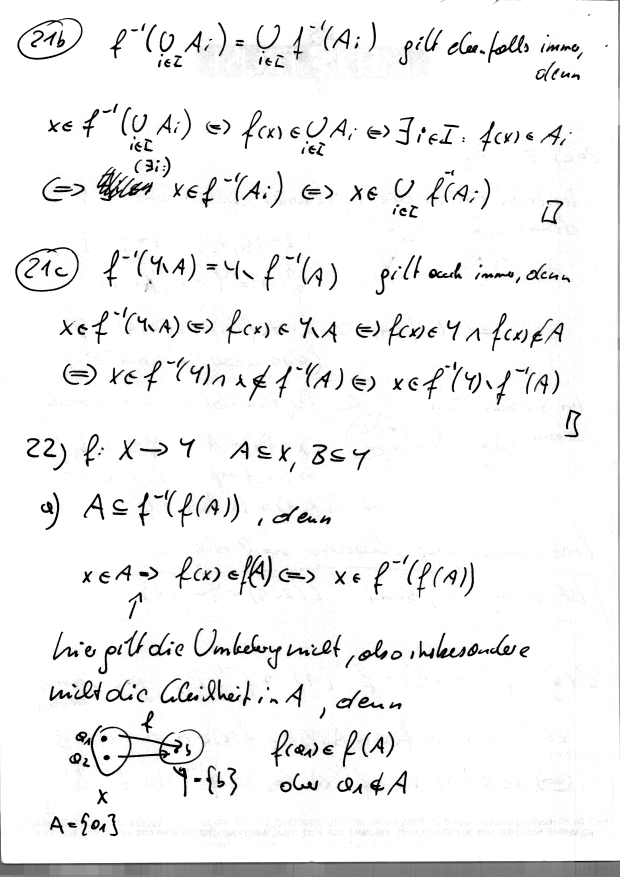 21b f⁻¹(⋃ Ai) = ⋃ f⁻¹(Ai) gilt ebenfalls immer,
i∈I i∈I denn
x∈ f⁻¹(⋃ Ai) ⇔ f(x) ∈ ⋃ Ai ⇔ ∃ i∈I: f(x) ∈ Ai
i∈I i∈I
(∃i:)
⇔ x∈f⁻¹(Ai) ⇔ x∈ ⋃ f⁻¹(Ai) □
i∈I
21c f⁻¹(Y\A) = Y\ f⁻¹(A) gilt auch immer, denn
x∈f⁻¹(Y\A) ⇔ f(x) ∈ Y\A ⇔ f(x)∈Y ∧ f(x)∉A
⇔ x∈f⁻¹(Y) ∧ x∉ f⁻¹(A) ⇔ x∈f⁻¹(Y)\f⁻¹(A)
□
22) f: X → Y A⊆X, B⊆Y
a) A ⊆ f⁻¹(f(A)), denn
x∈A ⇒ f(x) ∈ f(A) ⇔ x∈ f⁻¹(f(A))
↑
hier gilt die Umkehrung nicht, also insbesondere
nicht die Gleichheit in A, denn
f
a1 b f(a1) ∈ f(A)
a2 Y={b} aber a1∉A
X
A={a1}